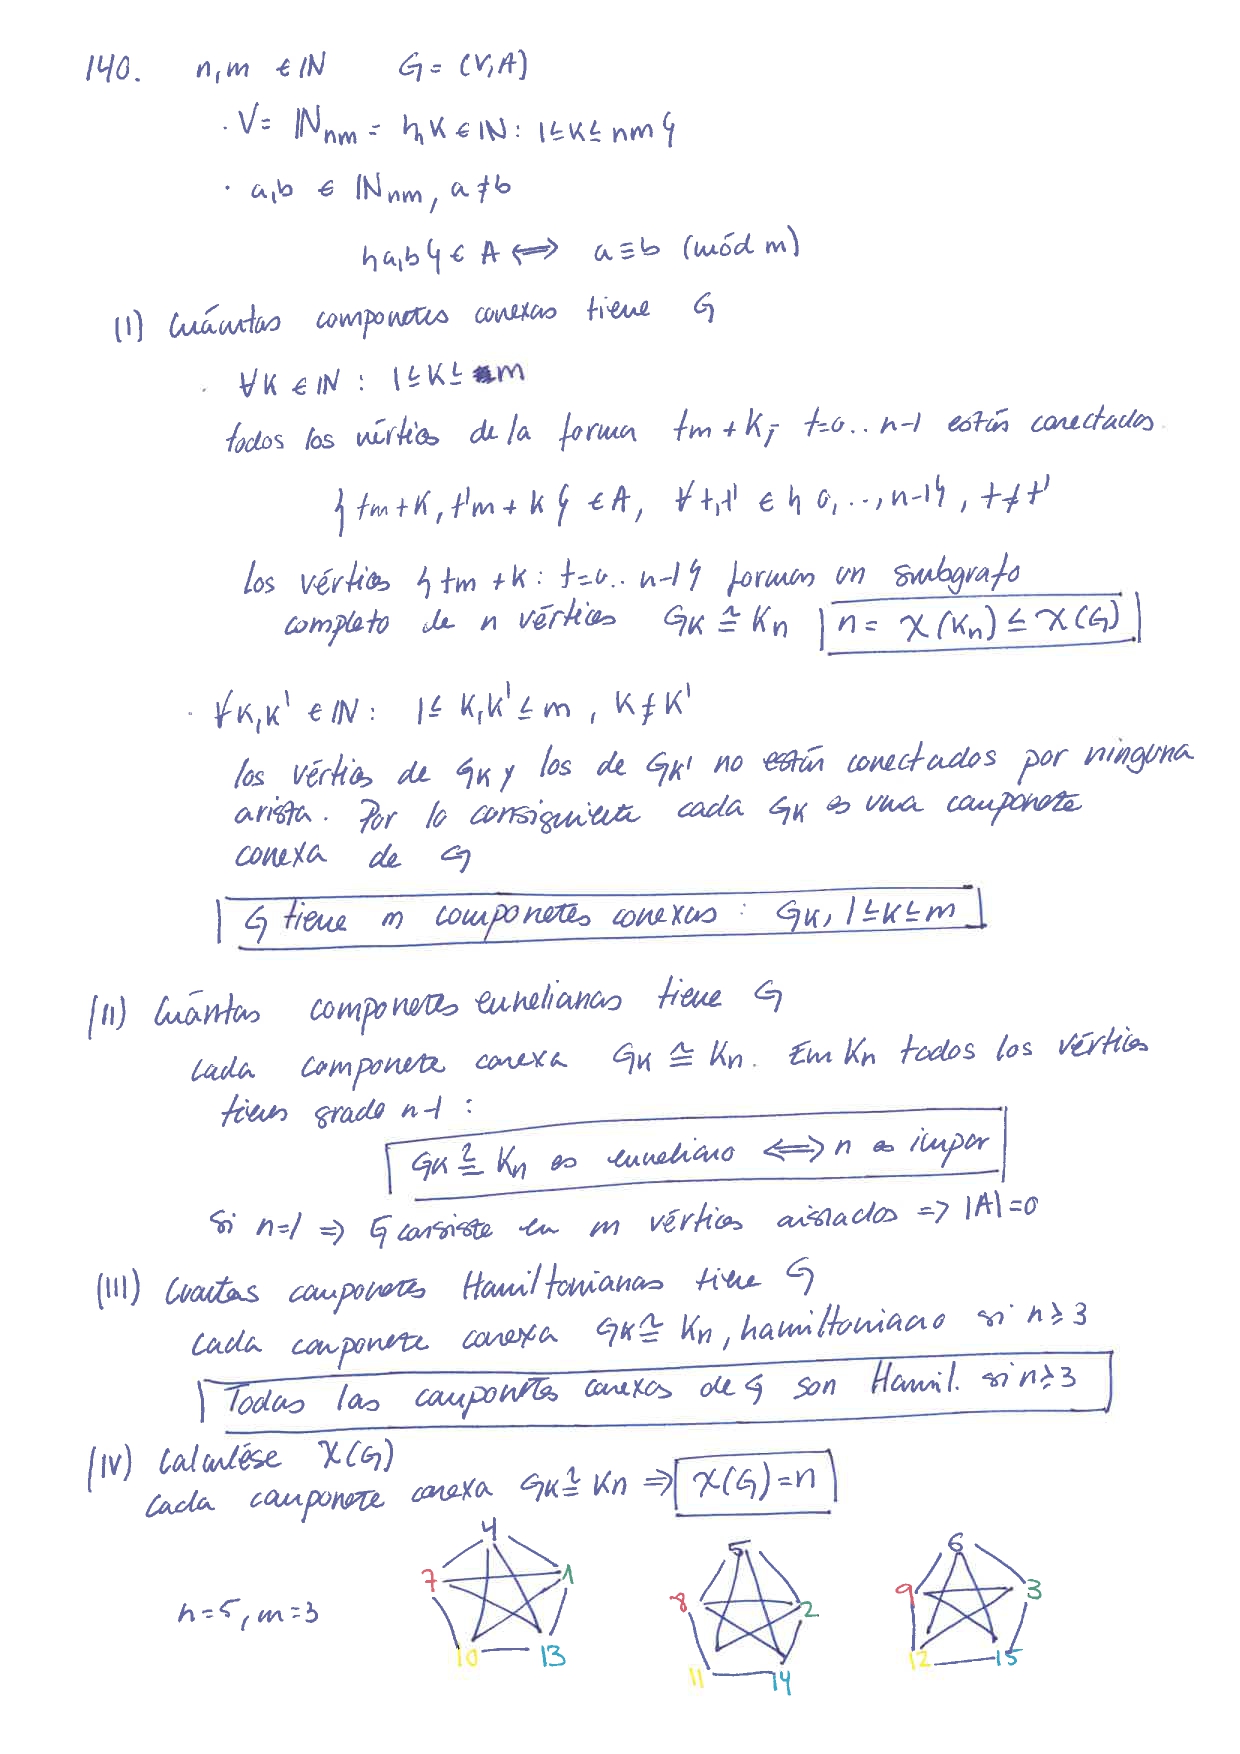 140. n,m ∈ IN G = (V,A)
· V = IN_nm = {K ∈ IN: 1≤K≤nm}
· a,b ∈ IN_nm, a≠b
{a,b} ∈ A ⟺ a≡b (mód m)
(I) Cuántas componetes conexas tiene G
· ∀K ∈ IN : 1≤K≤ m
todos los vértices de la forma tm+K, t=0..n-1 están conectados
{tm+K, t'm+k} ∈ A, ∀t,t' ∈ {0,..,n-1}, t≠t'
los vértices {tm+k: t=0..n-1} forman un subgrafo
completo de n vértices G_K ≅ K_n n = χ(K_n) ≤ χ(G)
· ∀K,K' ∈ IN: 1≤K,K'≤m, K≠K'
los vértices de G_K y los de G_K' no están conectados por ninguna
arista. Por lo consiguiente cada G_K es una componete
conexa de G
G tiene m componetes conexas: G_K, 1≤K≤m
(II) Cuántas componetes eurelianas tiene G
Cada componete conexa G_K ≅ K_n. Em K_n todos los vértices
tienen grado n-1 :
G_K ≅ K_n es eureliano ⟺ n es impar
Si n=1 ⇒ G consiste en m vértices aislados ⇒ |A|=0
(III) Cuantas componetes Hamiltonianas tiene G
Cada componete conexa G_K ≅ K_n, hamiltoniano si n≥3
Todas las componetes conexas de G son Hamil. si n≥3
(IV) Calculése χ(G)
Cada componete conexa G_K ≅ K_n ⇒ χ(G)=n
4 5 6
7 1 8 2 9 3
n=5, m=3
10 13 11 14 12 15